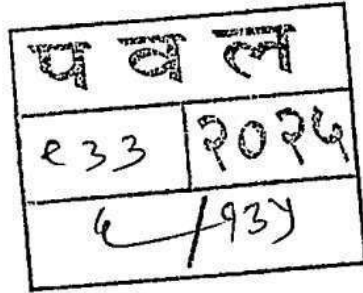 प व ल
९३३ २०२५
५/१३५